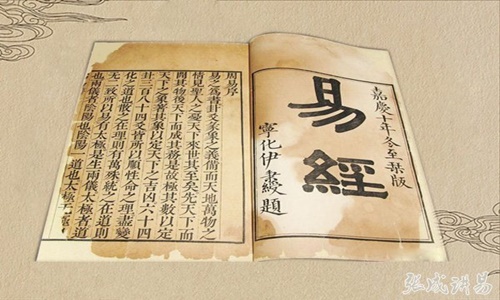 嘉慶十年冬至栞版
易經
寧化伊秉綬題
周易序
易之爲書卦爻彖象之義備而天地萬物之
情見聖人之憂天下來世其至矣先天下而
開其物後天下而成其務是故極其數以定
天下之象著其象以定天下之吉凶六十四
卦三百八十四爻皆所以順性命之理盡變
化之道也散之在理則有萬殊統之在道則
无二致所以易有太極是生兩儀太極者道
也兩儀者陰陽也陰陽一道也太極无極也
张成讲易